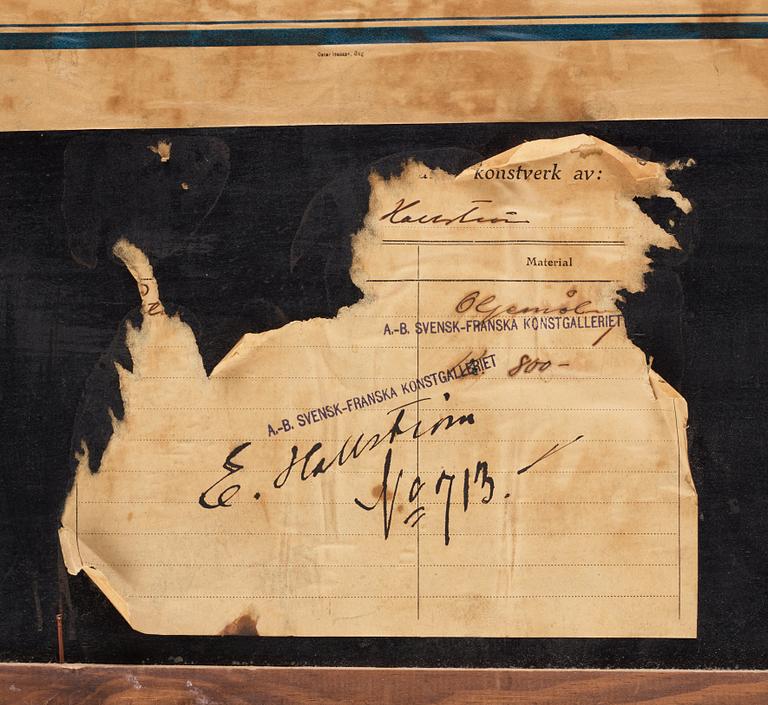 konstverk av:
Hallström
Material
Oljemåln
A.-B. SVENSK-FRANSKA KONSTGALLERIET
800-
A.-B. SVENSK-FRANSKA KONSTGALLERIET
E. Hallström
No 713.